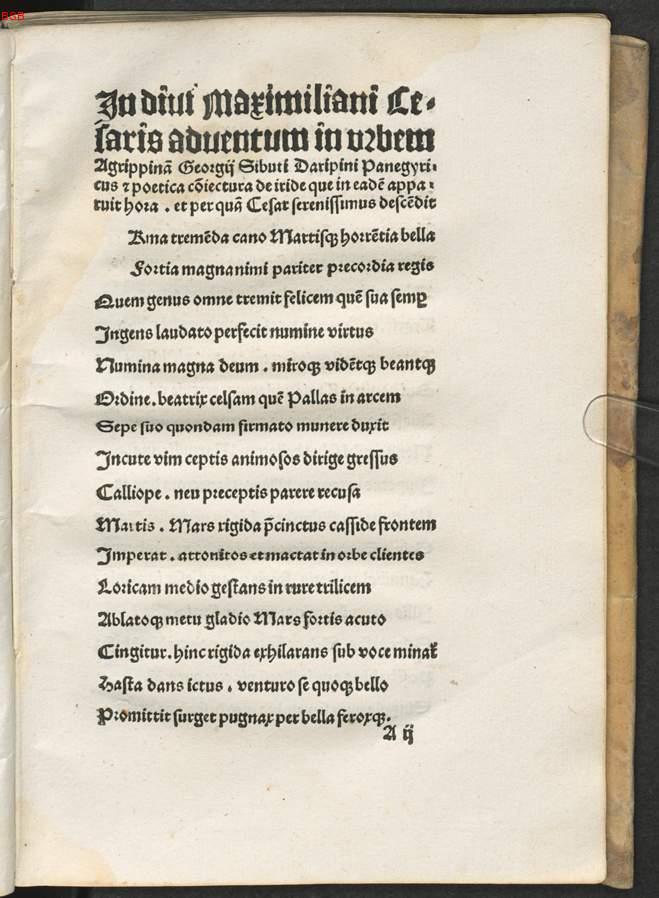 BSB
In diui Maximiliani Ce⸗
ſaris aduentum in vrbem
Agrippinā Georgij Sibuti Daripini Panegyri⸗
cus ⁊ poetica cōiectura de iride que in eadē appa⸗
ruit hora . et per quā Ceſar ſereniſſimus deſcēdit
Rma tremēda cano Martiſqꝫ horrētia bella
Fortia magnanimi pariter precordia regis
Quem genus omne tremit felicem quē ſua ſemꝑ
Ingens laudato perfecit numine virtus
Numina magna deum . miroqꝫ vidētqꝫ beantqꝫ
Ordine . beatrix celſam quē Pallas in arcem
Sepe ſuo quondam firmato munere duxit
Incute vim ceptis animoſos dirige greſſus
Calliope . neu preceptis parere recuſa
Martis . Mars rigida p̄cinctus caſſide frontem
Imperat . attonitos et mactat in orbe clientes
Loricam medio geſtans in rure trilicem
Ablatoqꝫ metu gladio Mars fortis acuto
Cingitur. hinc rigida exhilarans ſub voce minaꝶ
Haſta dans ictus . venturo ſe quoqꝫ bello
Promittit ſurget pugnax per bella feroxqꝫ.
A ij